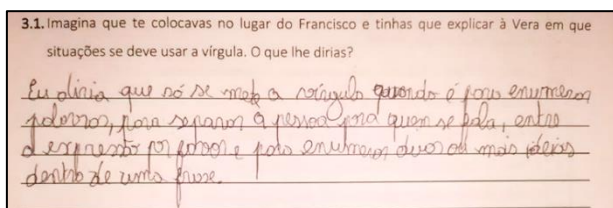 3.1. Imagina que te colocavas no lugar do Francisco e tinhas que explicar à Vera em que
situações se deve usar a vírgula. O que lhe dirias?
Eu diria que só se mete a vírgula quando é para enumerar
palavras, para separar a pessoa pra quem se fala, entre
a expressão por favor e para enumerar duas ou mais ideias
dentro de uma frase.